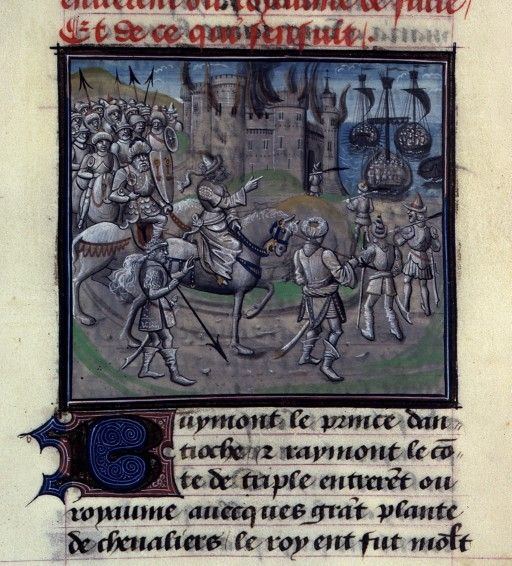 entrerent ou royaume de surie
Et de ce quil sensuit.
Buymont le prince dan
tioche ⁊ raymont le cō
te de triple entrerēt ou
royaume auecques grāt plante
de cheualiers / le roy ent fut mōlt